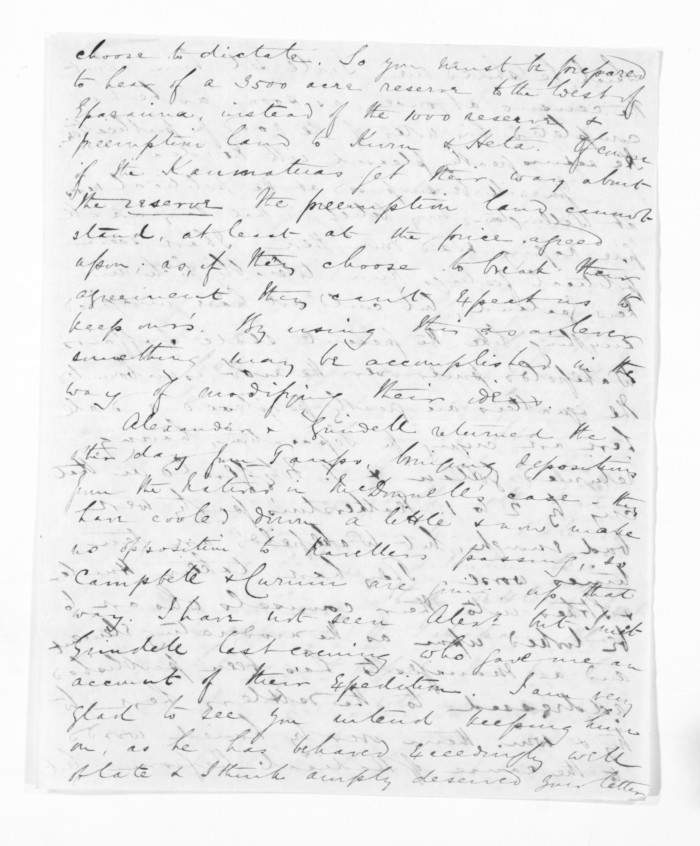 choose to dictate. So you must be prepared
to hear of a 3500 acre reserve to the West of
Eparaima, instead of the 1000 reserve &
preemption land to Kuru & Heta. Of course,
if the Kaumatuas get their way about
the reserve the preemption land cannot
stand, at least at the price agreed
upon: as, if they choose to break their
agreement they can't expect us to
keep ours. By using this as a lever
something may be accomplished in the
way of modifying their ideas
Alexander & Grindell returned the
other day from Taupo, bringing depositions
from the natives in McDonnell's case. They
have cooled down a little & now make
no opposition to travellers passing, so
Campbell & Curwin are going up that
way. I have not seen Alexr but I met
Grindell last evening who gave me an
account of their Expedition. I am very
glad to see you intend keeping him
on, as he has behaved exceedingly well
of late & I think amply deserved your letter